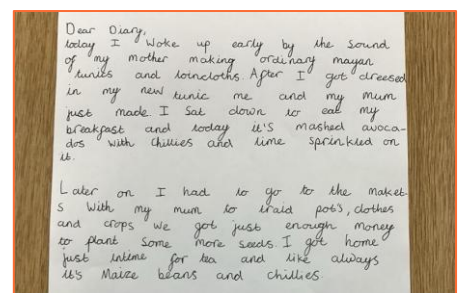 Dear Diary,
today I woke up early by the sound
of my mother making ordinary mayan
tunics and loincloths. After I got dreesed
in my new tunic me and my mum
just made. I sat down to eat my
breakfast and today it's mashed avoca-
dos with chillies and lime sprinkled on
it.
Later on I had to go to the maket-
s with my mum to traid pot's, clothes
and crops we got just enough money
to plant some more seeds. I got home
just intime for tea and like always
it's Maize beans and chillies.